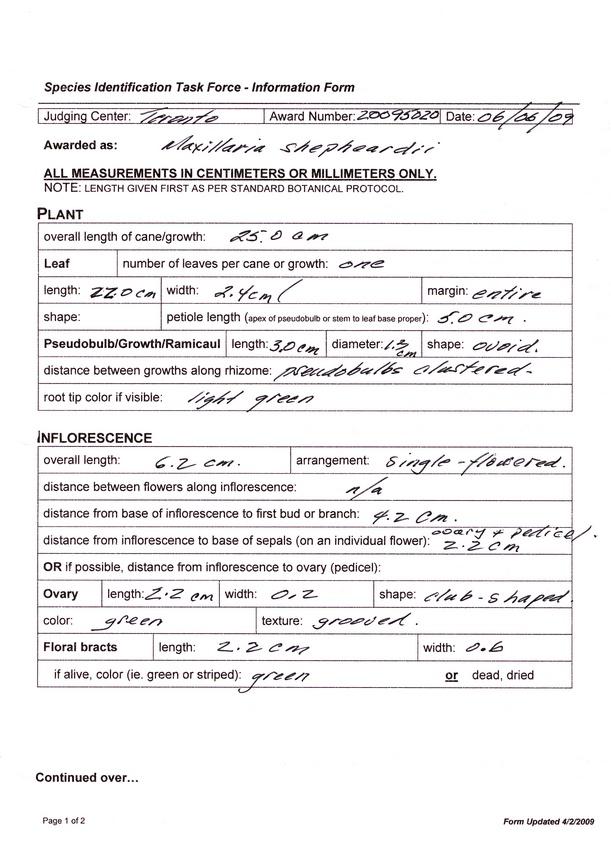 Species Identification Task Force - Information Form
Judging Center: Toronto Award Number: 20095020 Date: 06/06/09
Awarded as: Maxillaria shepheardii
ALL MEASUREMENTS IN CENTIMETERS OR MILLIMETERS ONLY.
NOTE: LENGTH GIVEN FIRST AS PER STANDARD BOTANICAL PROTOCOL.
PLANT
overall length of cane/growth: 25.0 cm
Leaf number of leaves per cane or growth: one
length: 22.0 cm width: 2.4 cm margin: entire
shape: petiole length (apex of pseudobulb or stem to leaf base proper): 5.0 cm.
Pseudobulb/Growth/Ramicaul length: 3.0 cm diameter: cm shape: ovoid.
distance between growths along rhizome: pseudobulbs clustered-
root tip color if visible: light green
INFLORESCENCE
overall length: 6.2 cm. arrangement: single-flowered.
distance between flowers along inflorescence: n/a
distance from base of inflorescence to first bud or branch: 4.2 cm.
distance from inflorescence to base of sepals (on an individual flower): ovary + pedicel. 2.2 cm
OR if possible, distance from inflorescence to ovary (pedicel):
Ovary length: 2.2 cm width: 0.2 shape: club-shaped.
color: green texture: grooved.
Floral bracts length: 2.2 cm width: 0.6
if alive, color (ie. green or striped): green or dead, dried
Continued over...
Page 1 of 2 Form Updated 4/2/2009